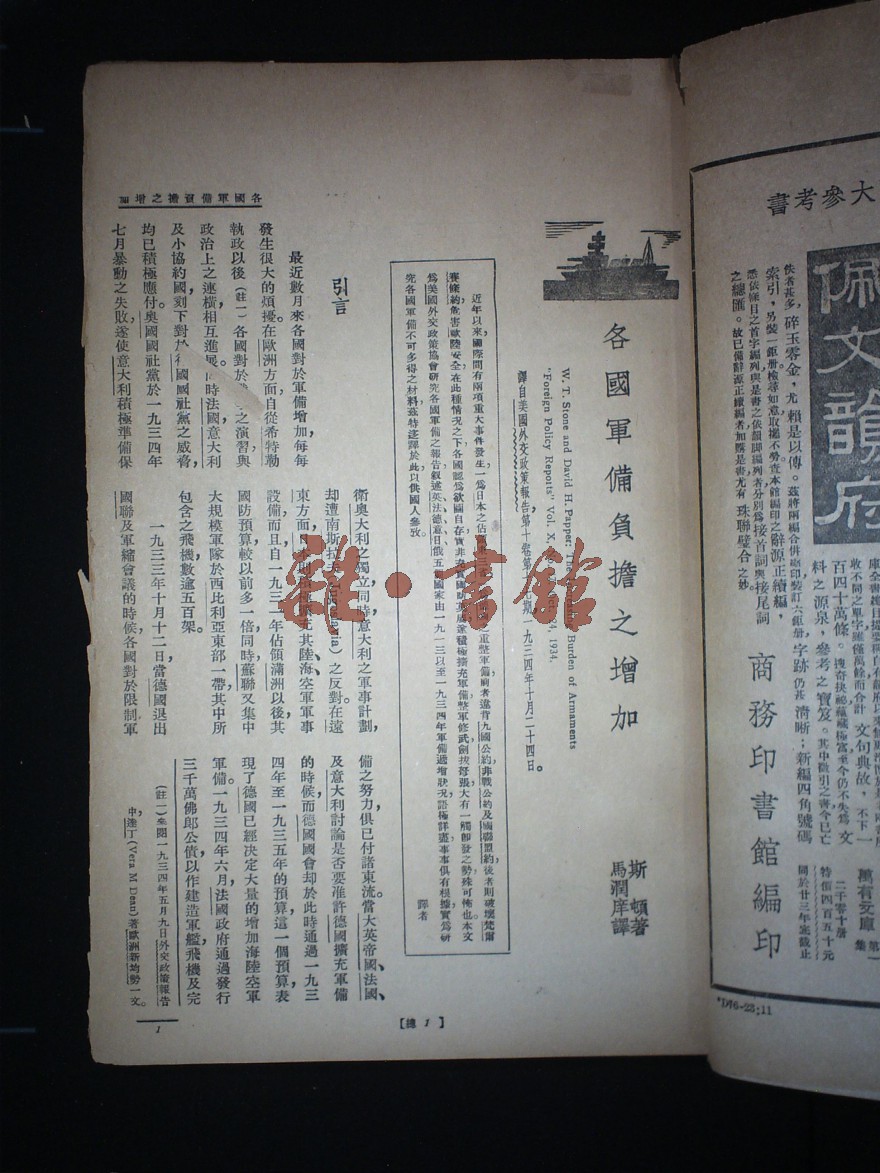 各國軍備負擔之增加
各國軍備負擔之增加
斯頓著
馬潤庠譯
W. T. Stone and David H. Popper: The Burden of Armaments
"Foreign Policy Reports" Vol. X, 1934.
譯自美國外交政策報告第十卷第 期，一九三四年十月二十四日。
近年以來國際間有兩項重大事件發生一爲日本之佔 重整軍備前者違背九國公約非戰公約及國聯盟約後者則破壞梵爾
賽條約危害歐陸安全在此種情況之下各國認爲欲圖自存實非 積極擴充軍備整軍修武劍拔弩張大有一觸卽發之勢殊可怖也本文
爲美國外交政策協會研究各國軍備之報告敍述英法德意日俄五 國家由一九一三以至一九三四年軍備遞增狀況語極詳盡事事俱有根據實爲研
究各國軍備不可多得之材料茲特迻譯於此以供國人參攷。
譯者
引言
最近數月來各國對於軍備增加每每
發生很大的煩擾在歐洲方面自從希特勒
執政以後（註一）各國對於 之演習與
政治上之連橫相互進展 同時法國意大利
及小協約國刻下對於 國國社黨之威脅
均已積極應付。奧國國社黨於一九三四年
七月暴動之失敗，遂使意大利積極準備保
衛奧大利之獨立，同時意大利之軍事計劃，
却遭南斯拉夫 之反對在遠
東方面日本則 擴充其陸、海、空軍軍事
設備而且自一九三一年佔領滿洲以後其
國防預算較以前多一倍同時蘇聯又集中
大規模軍隊於西比利亞東部一帶其中所
包含之飛機數逾五百架。
一九三三年十月十二日當德國退出
國聯及軍縮會議的時候各國對於限制軍
備之努力俱已付諸東流。當大英帝國、法國、
及意大利討論是否要准許德國擴充軍備
的時候而德國國會却於此時通過一九三
四年至一九三五年的預算這一個預算表
現了德國已經決定大量的增加海陸空軍
軍備。一九三四年六月法國政府通過發行
三千萬佛郎公債以作建造軍艦飛機及完
（註一）參閱一九三四年五月九日外交政策報告
中達丁（Vera M Dean）著歐洲新均勢一文。
1
【總 1】
雜·書館
大參考書
佩文韻府
佚者甚多，碎玉零金，尤賴是以傳。茲將兩編合併縮印裝訂六鉅册，字跡仍甚清晰；新編四角號碼
索引，另裝一鉅册檢尋如意取攜不勞。查本館編印之辭源正續編，
悉依條目之首字編列與是書之依韻脚編列者分別爲接首詞與接尾詞
之總匯。故已備辭源正續編者，如購是書，尤有珠聯璧合之妙。
收不同之單字雖僅萬餘而合計文句典故，不下一
百四十萬條。搜奇抉祕蘊藏極富至今仍不失爲文
料之源泉，參考之寶笈。其中徵引之書今已亡
商務印書館編印
萬有文庫第二集
二千零十册
特價四百五十元
國於廿三年底截止
*D76-23;11